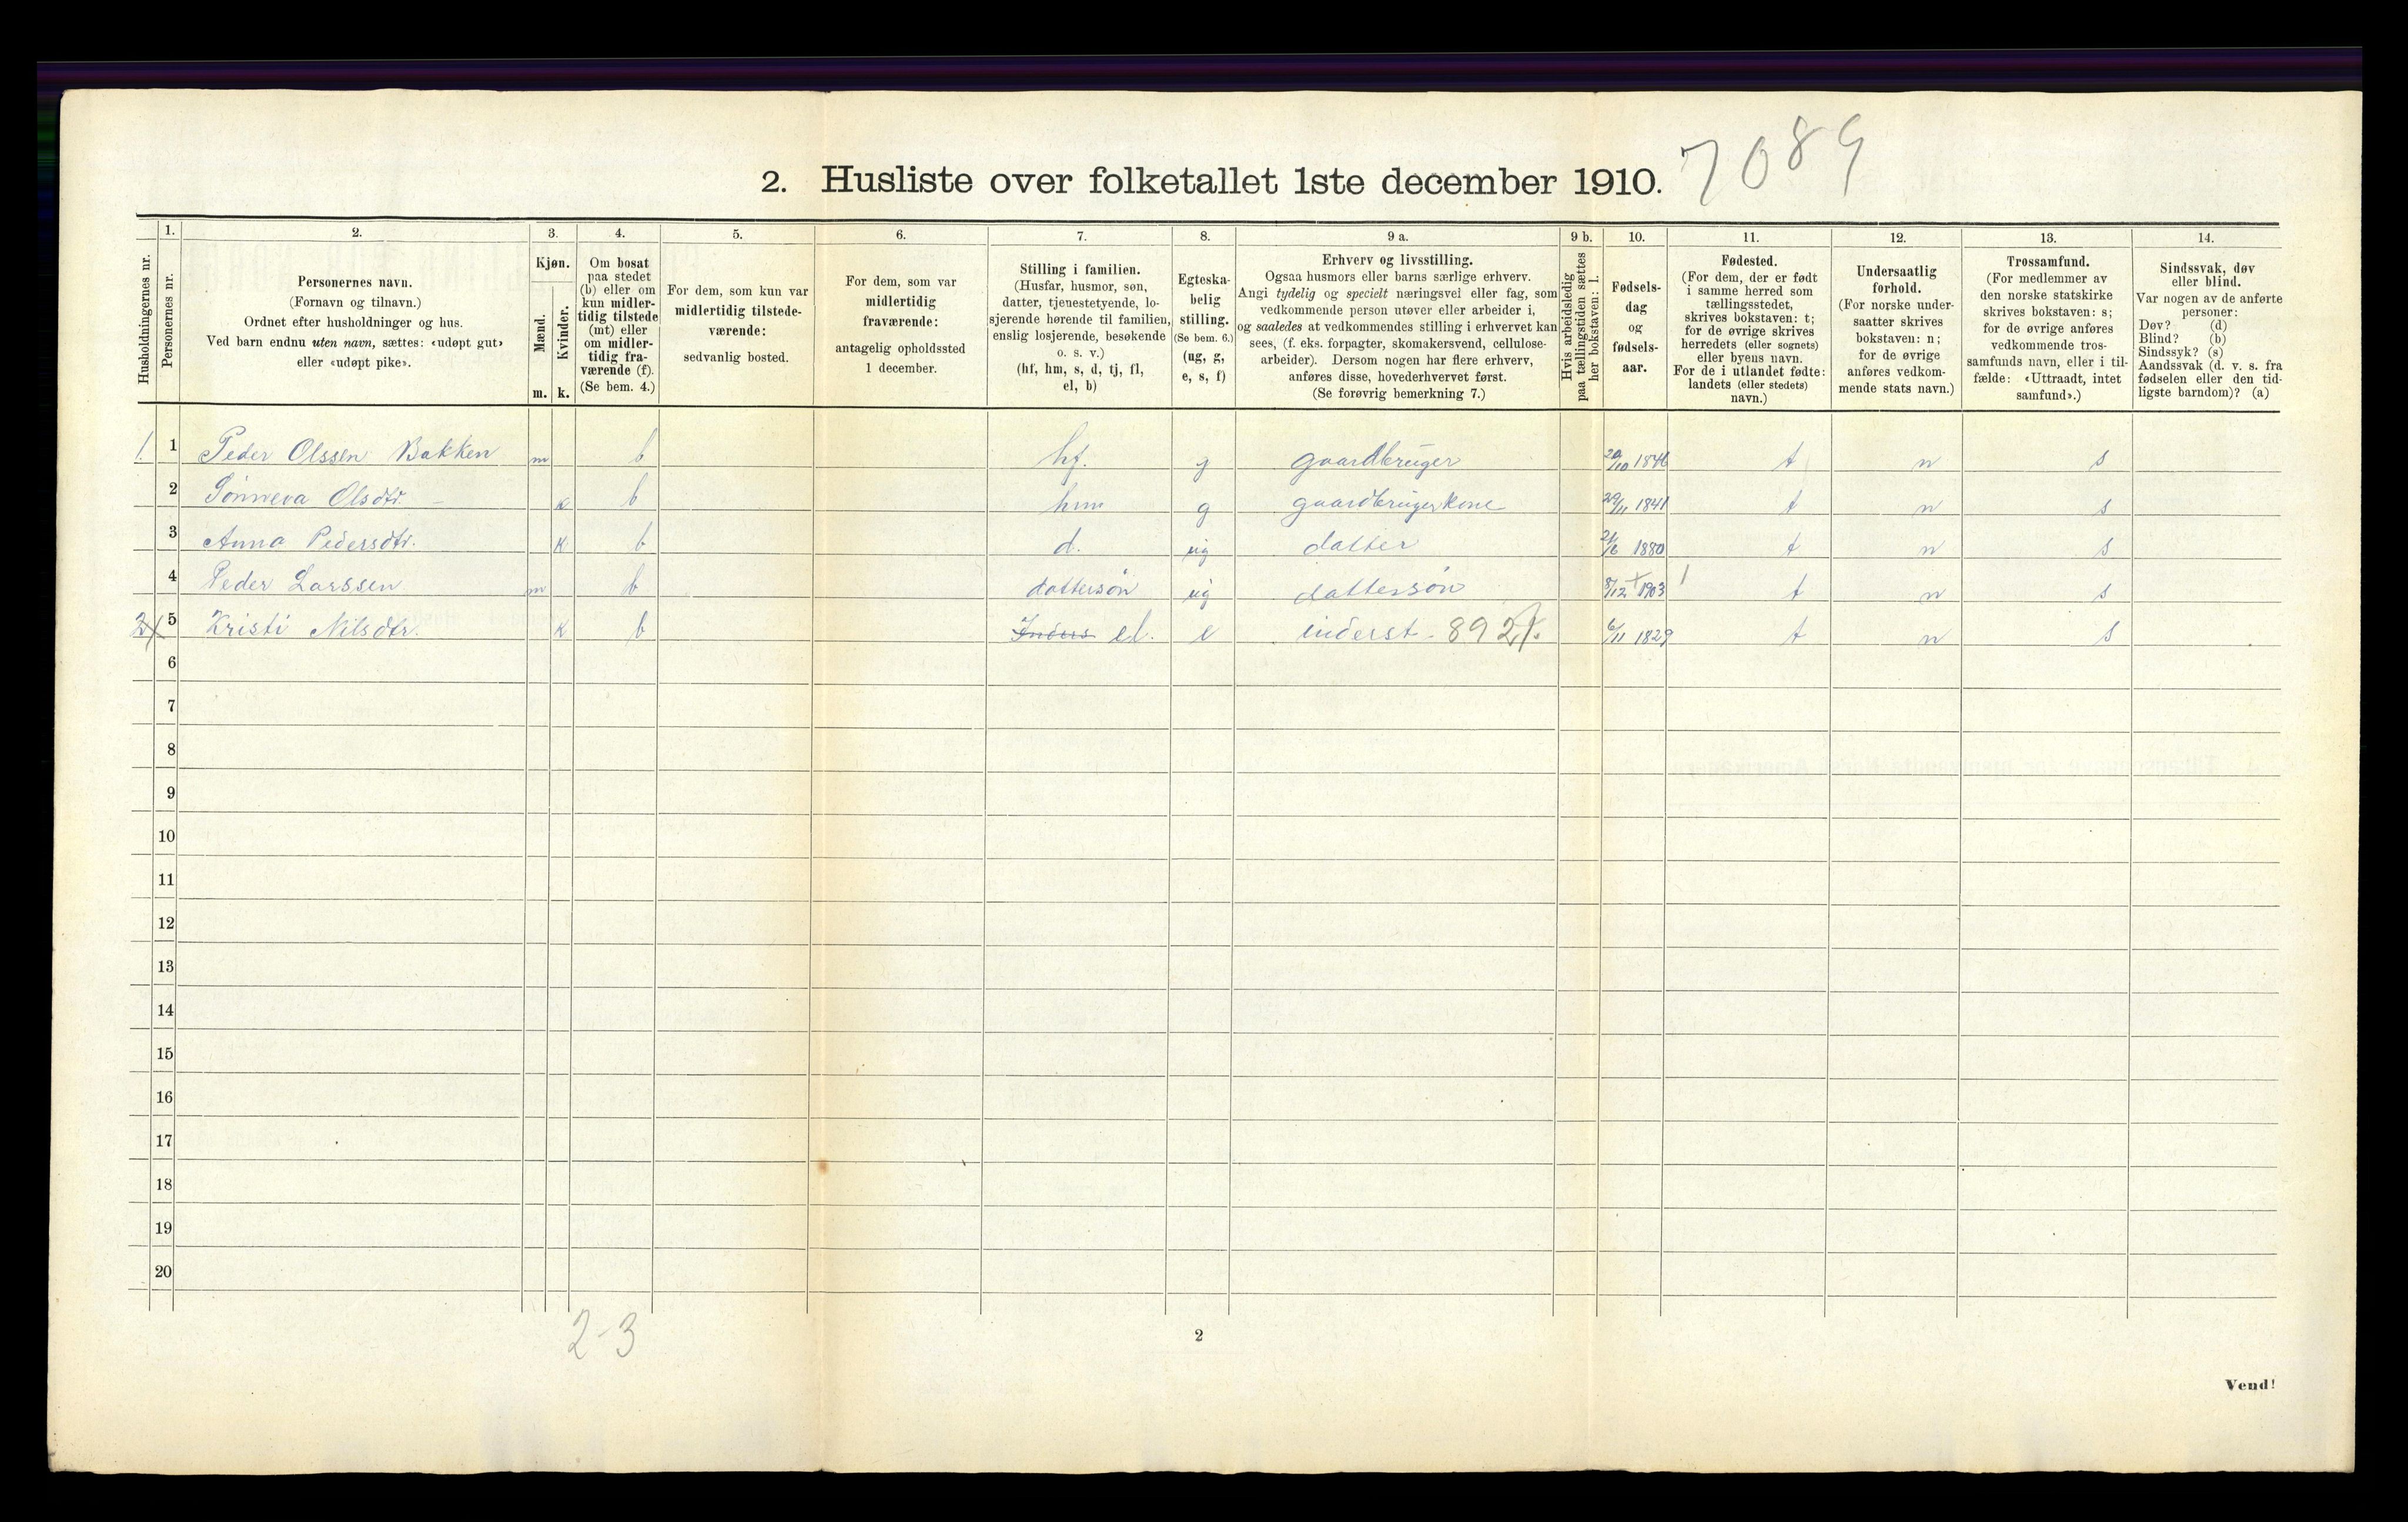 2. Husliste over folketallet 1ste december 1910. 7089
Husholdningernes nr.
1.
Personernes nr.
2.
Personernes navn.
(Fornavn og tilnavn.)
Ordnet efter husholdninger og hus.
Ved barn endnu uten navn, sættes: «udøpt gut»
eller «udøpt pike».
3.
Kjøn.
Mænd.
Kvinder.
m. k.
4.
Om bosat
paa stedet
(b) eller om
kun midler-
tidig tilstede
(mt) eller
om midler-
tidig fra-
værende (f).
(Se bem. 4.)
5.
For dem, som kun var
midlertidig tilstede-
værende:
sedvanlig bosted.
6.
For dem, som var
midlertidig
fraværende:
antagelig opholdssted
1 december.
7.
Stilling i familien.
(Husfar, husmor, søn,
datter, tjenestetyende, lo-
sjerende hørende til familien,
enslig losjerende, besøkende
o. s. v.)
(hf, hm, s, d, tj, fl,
el, b)
8.
Egteska-
belig
stilling.
(Se bem. 6.)
(ug, g,
e, s, f)
9 a.
Erhverv og livsstilling.
Ogsaa husmors eller barns særlige erhverv.
Angi tydelig og specielt næringsvei eller fag, som
vedkommende person utøver eller arbeider i,
og saaledes at vedkommendes stilling i erhvervet kan
sees, (f. eks. forpagter, skomakersvend, cellulose-
arbeider). Dersom nogen har flere erhverv,
anføres disse, hovederhvervet først.
(Se forøvrig bemerkning 7.)
9 b.
Hvis arbeidsledig
paa tællingstiden sættes
her bokstaven: l.
10.
Fødsels-
dag
og
fødsels-
aar.
11.
Fødested.
(For dem, der er født
i samme herred som
tællingsstedet,
skrives bokstaven: t;
for de øvrige skrives
herredets (eller sognets)
eller byens navn.
For de i utlandet fødte:
landets (eller stedets)
navn.)
12.
Undersaatlig
forhold.
(For norske under-
saatter skrives
bokstaven: n;
for de øvrige
anføres vedkom-
mende stats navn.)
13.
Trossamfund.
(For medlemmer av
den norske statskirke
skrives bokstaven: s;
for de øvrige anføres
vedkommende tros-
samfunds navn, eller i til-
fælde: «Uttraadt, intet
samfund».)
14.
Sindssvak, døv
eller blind.
Var nogen av de anførte
personer:
Døv? (d)
Blind? (b)
Sindssyk? (s)
Aandssvak (d. v. s. fra
fødselen eller den tid-
ligste barndom)? (a)
1. 1 Peder Olssen Bakken m b hf. g gaardbruger 20/10 1846 t n s
2 Sønneva Olsdtr. – k b hm g gaardbrugerkone 29/11 1841 t n s
3 Anna Pedersdtr. k b d. ug datter 21/6 1880 t n s
4 Peder Larssen m b dattersøn ug dattersøn 8/12 1903 t n s
2 5 Kristi Nilsdtr. k b Inders el. e inderst - 892 6/11 1829 t n s
6
7
8
9
10
11
12
13
14
15
16
17
18
19
20
2-3
2
Vend!